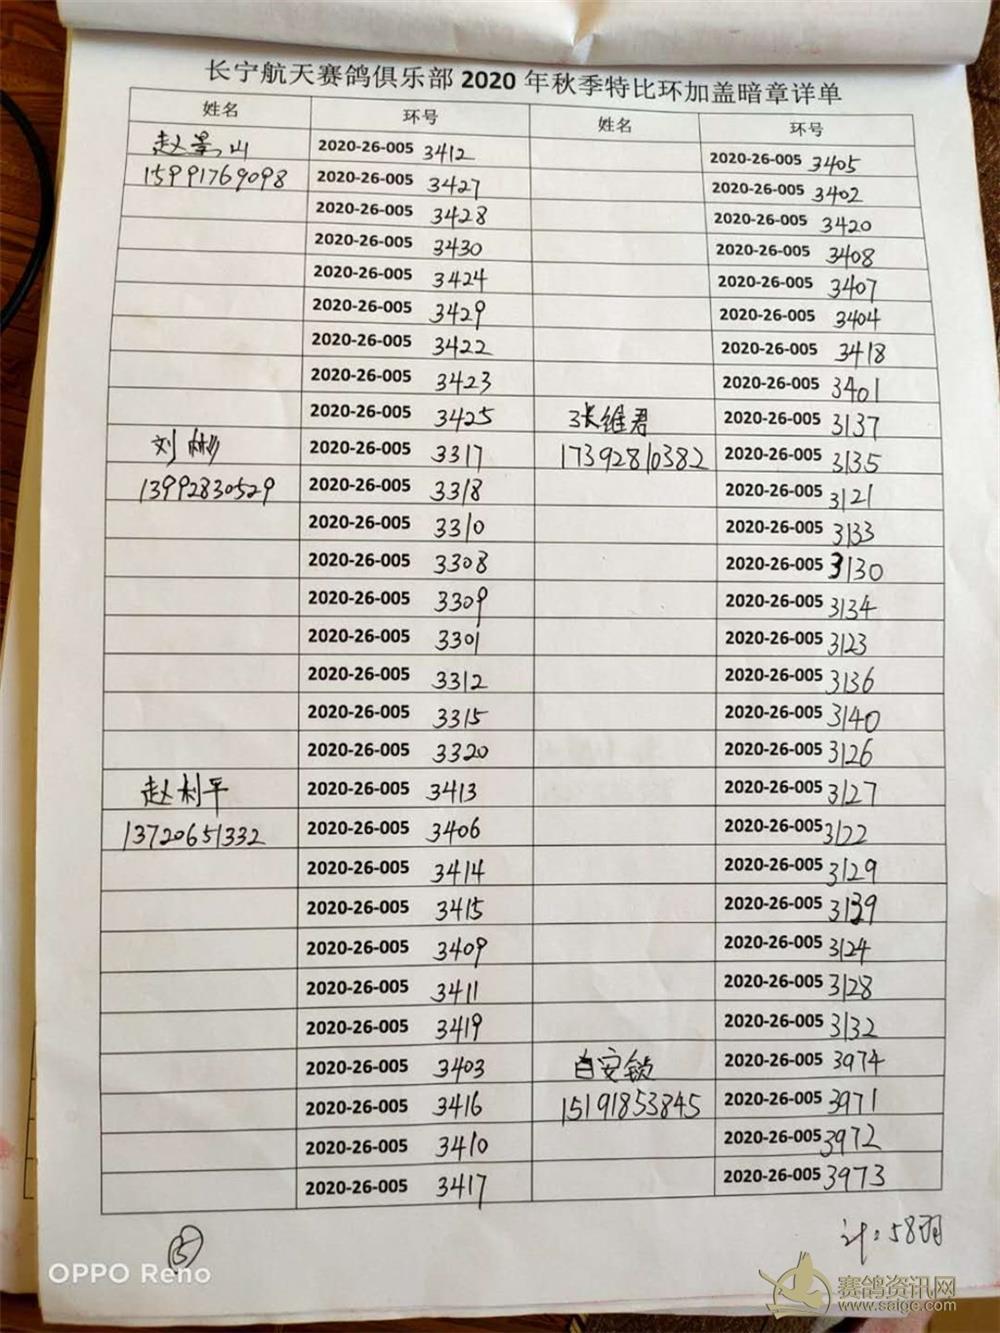 长宁航天赛鸽俱乐部 2020 年秋季特比环加盖暗章详单
姓名 环号 姓名 环号
赵景山 2020-26-005 3412 2020-26-005 3405
15991769098 2020-26-005 3427 2020-26-005 3402
2020-26-005 3428 2020-26-005 3420
2020-26-005 3430 2020-26-005 3408
2020-26-005 3424 2020-26-005 3407
2020-26-005 3429 2020-26-005 3404
2020-26-005 3422 2020-26-005 3418
2020-26-005 3423 2020-26-005 3401
2020-26-005 3425 张维君 2020-26-005 3137
刘彬 2020-26-005 3317 17392810382 2020-26-005 3135
13992830529 2020-26-005 3318 2020-26-005 3121
2020-26-005 3310 2020-26-005 3133
2020-26-005 3308 2020-26-005 3130
2020-26-005 3309 2020-26-005 3134
2020-26-005 3301 2020-26-005 3123
2020-26-005 3312 2020-26-005 3136
2020-26-005 3315 2020-26-005 3140
2020-26-005 3320 2020-26-005 3126
赵利平 2020-26-005 3413 2020-26-005 3127
13720651332 2020-26-005 3406 2020-26-005 3122
2020-26-005 3414 2020-26-005 3129
2020-26-005 3415 2020-26-005 3139
2020-26-005 3409 2020-26-005 3124
2020-26-005 3411 2020-26-005 3128
2020-26-005 3419 2020-26-005 3132
2020-26-005 3403 白安锁 2020-26-005 3974
2020-26-005 3416 15191853845 2020-26-005 3971
2020-26-005 3410 2020-26-005 3972
2020-26-005 3417 2020-26-005 3973
计:58羽
OPPO Reno
赛鸽资讯网
www.saige.com